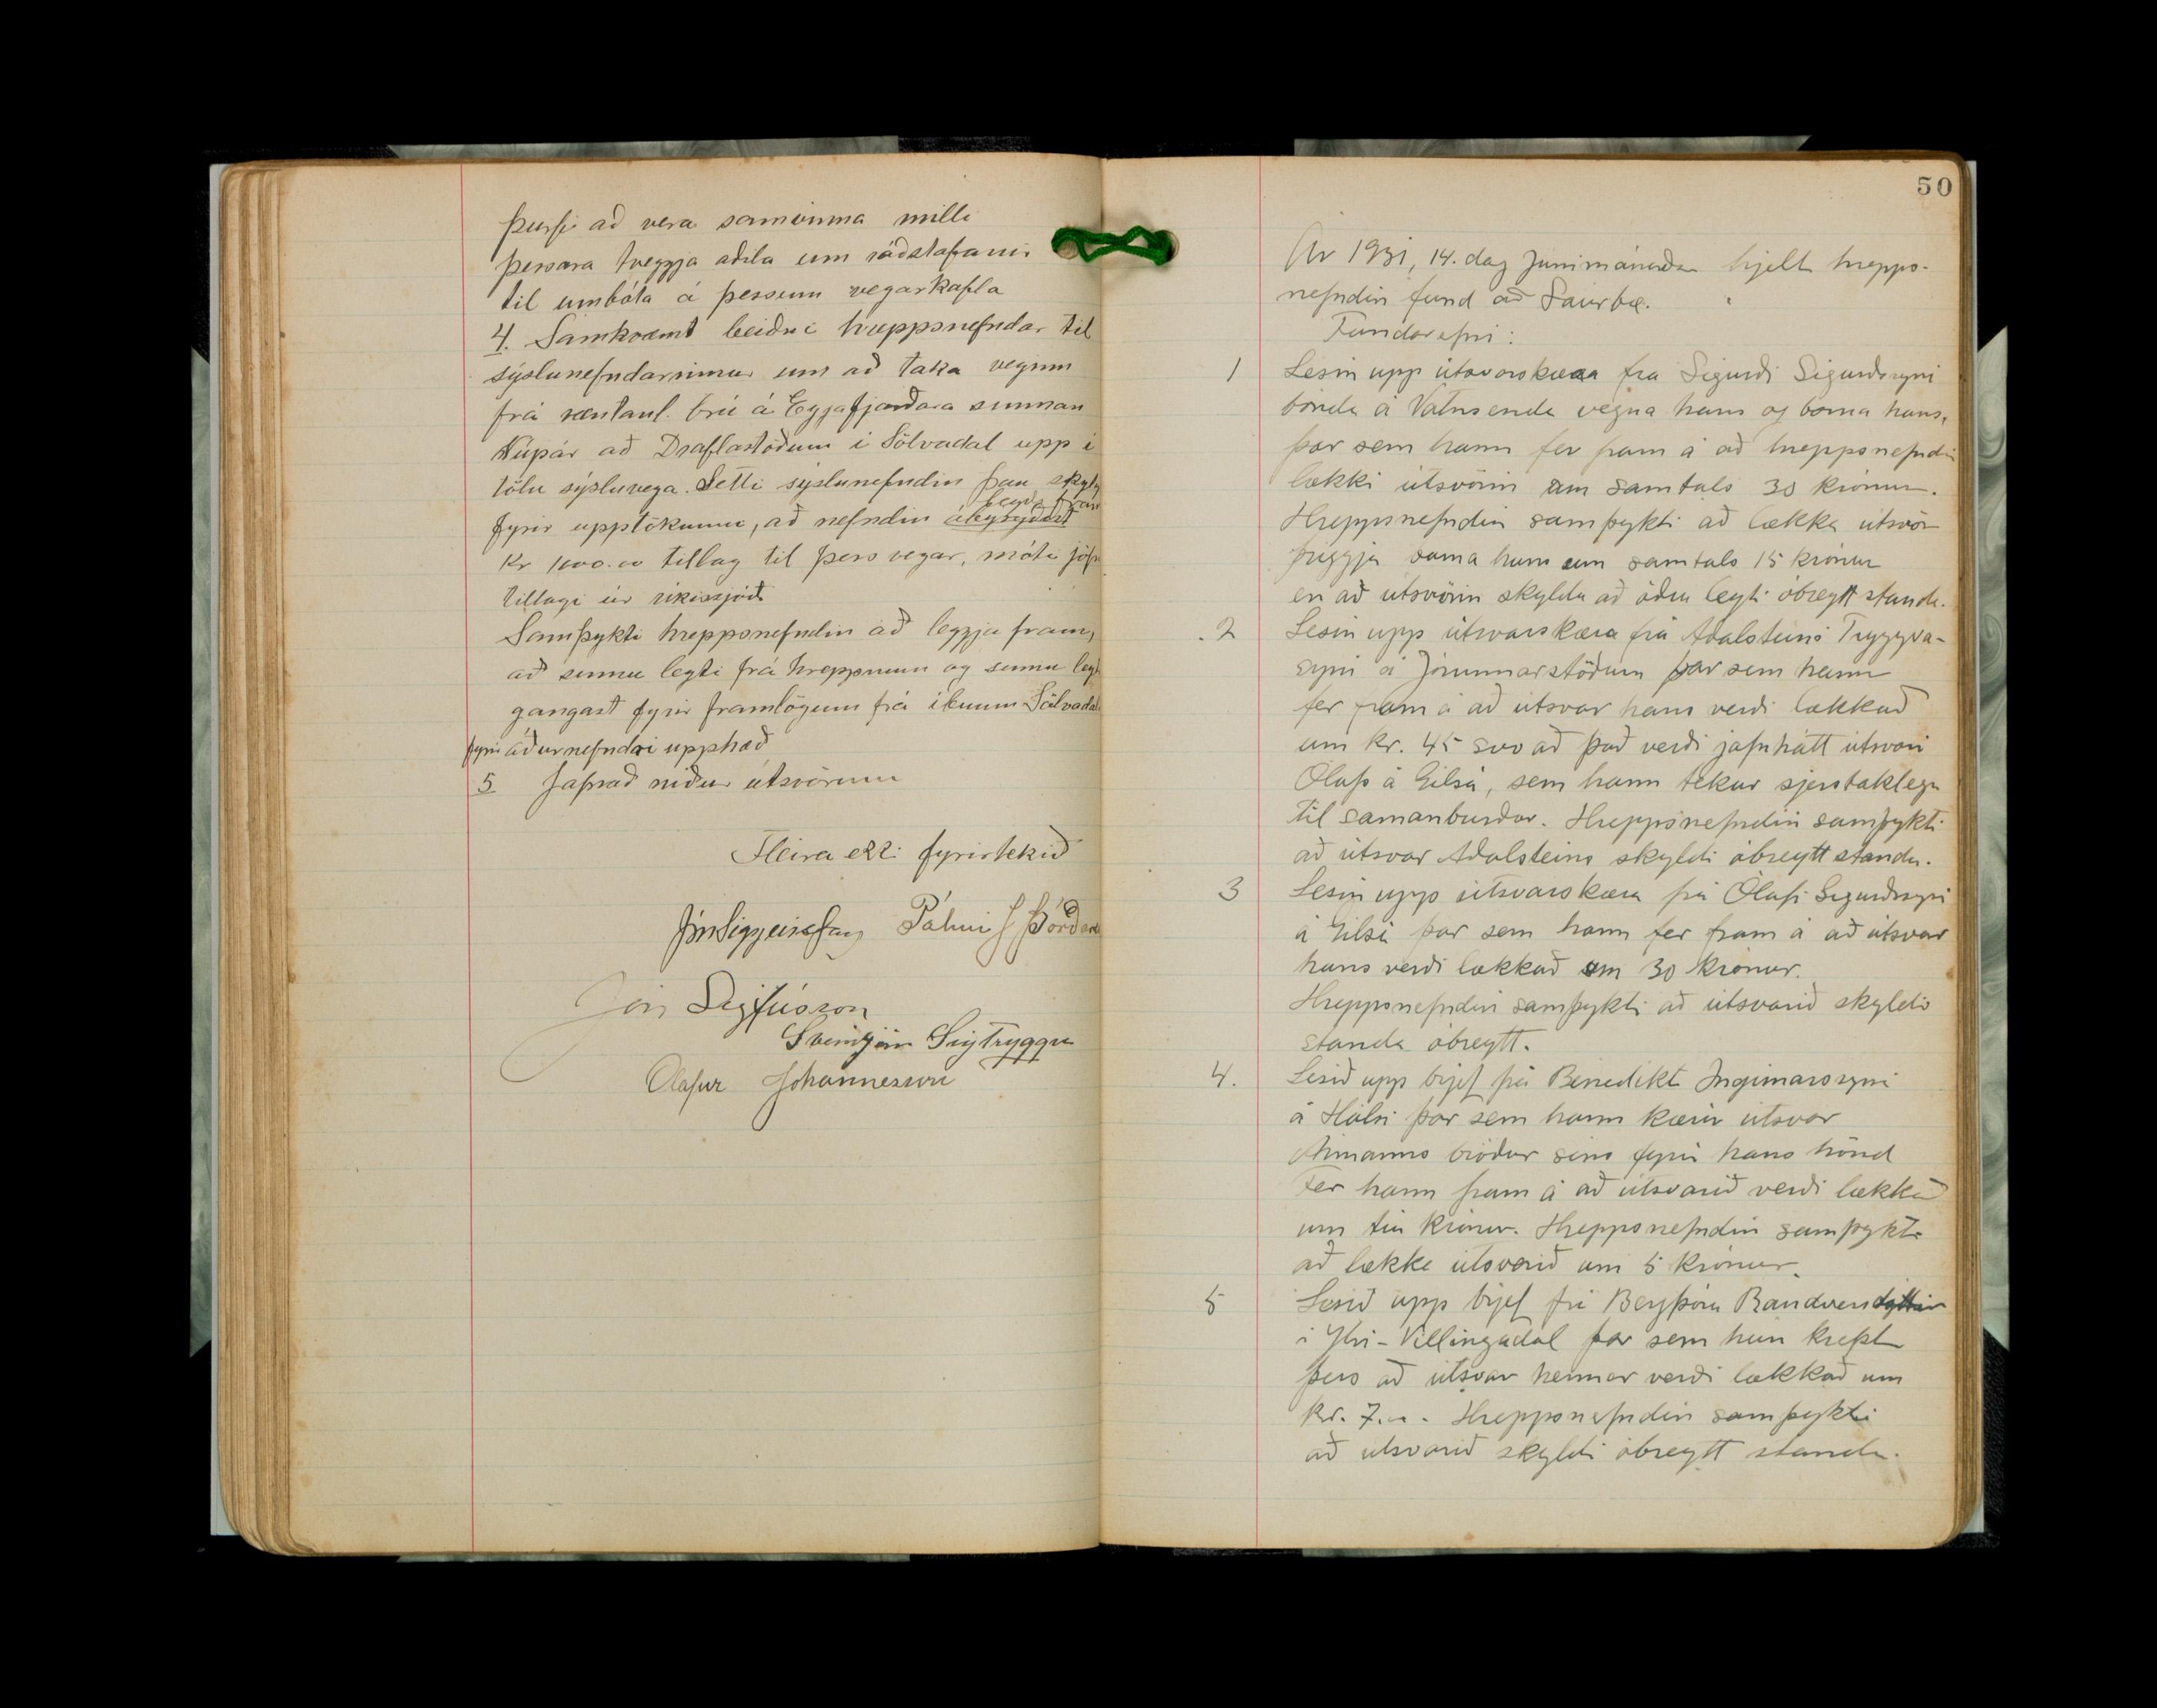 þurfi að vera samvinna milli
þessara tveggja aðila um ráðstafanir
til umbóta á þessum vegarkafla
4. Samkvæmt beiðni hreppsnefndar til
sýslunefndarinnar um að taka veginn
frá væntanl. brú á Eyjafjarðará sunnan
Núpár að Draflastöðum í Sölvadal upp í
tölu sýsluvega. Setti sýslunefndin þau skyly
legði fram
fyrir upptökunni, að nefndin ábyrgðist
kr 1000.00 tillag til þess vegar, móti jöfn
tillagi úr ríkissjóð
Samþykti hreppsnefndin að leggja fram,
að sumu leyti frá hreppnum og sumu leyt
gangast fyrir framlögum frá íbúum Sölvadals
fyrir áðurnefndri upphæð
5 Jafnað niður útsvörum
Fleira ekki fyrirtekið
Jón Siggeirsson Pálmi J Þórðars
Jón Sigfússon
Sveinbjörn Sigtryggs
Ólafur Jóhannesson
50
Ár 1931, 14. dag Júnímánaðar hjelt hrepps-
nefndin fund að Saurbæ.
Fundarefni:
1 Lesin upp útsvarskæra frá Sigurði Sigurðssyni
bónda á Vatnsenda vegna hans og barna hans,
þar sem hann fer fram á að hreppsnefndin
lækki útsvörin um samtals 30 krónur.
Hreppsnefndin samþykti að lækka útsvör
þriggja barna hans um samtals 15 krónur
en að útsvörin skyldu að öðru leyti óbreytt standa.
2 Lesin upp útsvarskæra frá Aðalsteini Tryggva-
syni á Jórunnarstöðum þar sem hann
fer fram á að útsvar hans verði lækkað
um kr. 45 svo að það verði jafnhátt útsvari
Ólafs á Gilsá, sem hann tekur sjerstaklega
til samanburðar. Hreppsnefndin samþykti
að útsvar Aðalsteins skyldi óbreytt standa.
3 Lesin upp útsvarskæra frá Ólafi Sigurðssyni
á Gilsá þar sem hann fer fram á að útsvar
hans verði lækkað um 30 krónur.
Hreppsnefndin samþykti að útsvarið skyldi
standa óbreytt.
4. Lesið upp brjef frá Benedikt Ingimarssyni
á Hálsi þar sem hann kærir útsvar
Ármanns bróður síns fyrir hans hönd
Fer hann fram á að útsvarið verði lækkað
um tíu krónur. Hreppsnefndin samþykti
að lækka útsvarið um 5 krónur.
5 Lesið upp brjef frá Bergþóru Randversdóttir
í Ytri-Villingadal þar sem hún krefst
þess að útsvar hennar verði lækkað um
kr. 7.00. Hreppsnefndin samþykti
að útsvarið skyldi óbreytt standa.